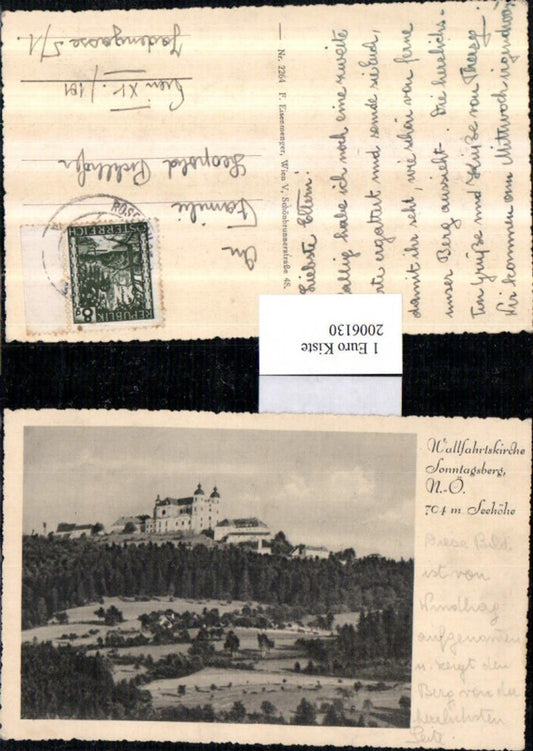 Liebste Eltern!
habe ich noch eine zweite
ergattert und sende sie Euch,
damit ihr seht, wie schön von ferne
unser Berg aussieht. Die herzlichs-
ten Grüße und Küsse von Theresa.
Wir kommen am Mittwoch irgendwo.
Nr. 2264 F. Eisenmenger, Wien V., Schönbrunnerstraße 48.
An
Familie
Leopold
Wien XV. / 101
5/1.
REPUBLIK
ÖSTERREICH
8
1 Euro Kiste
2006130
Wallfahrtskirche
Sonntagsberg,
N.-Ö.
704 m Seehöhe
Diese Bild
ist von
Windhag
aufgenommen
u. zeigt den
Berg von der
herrlichsten
Seite.